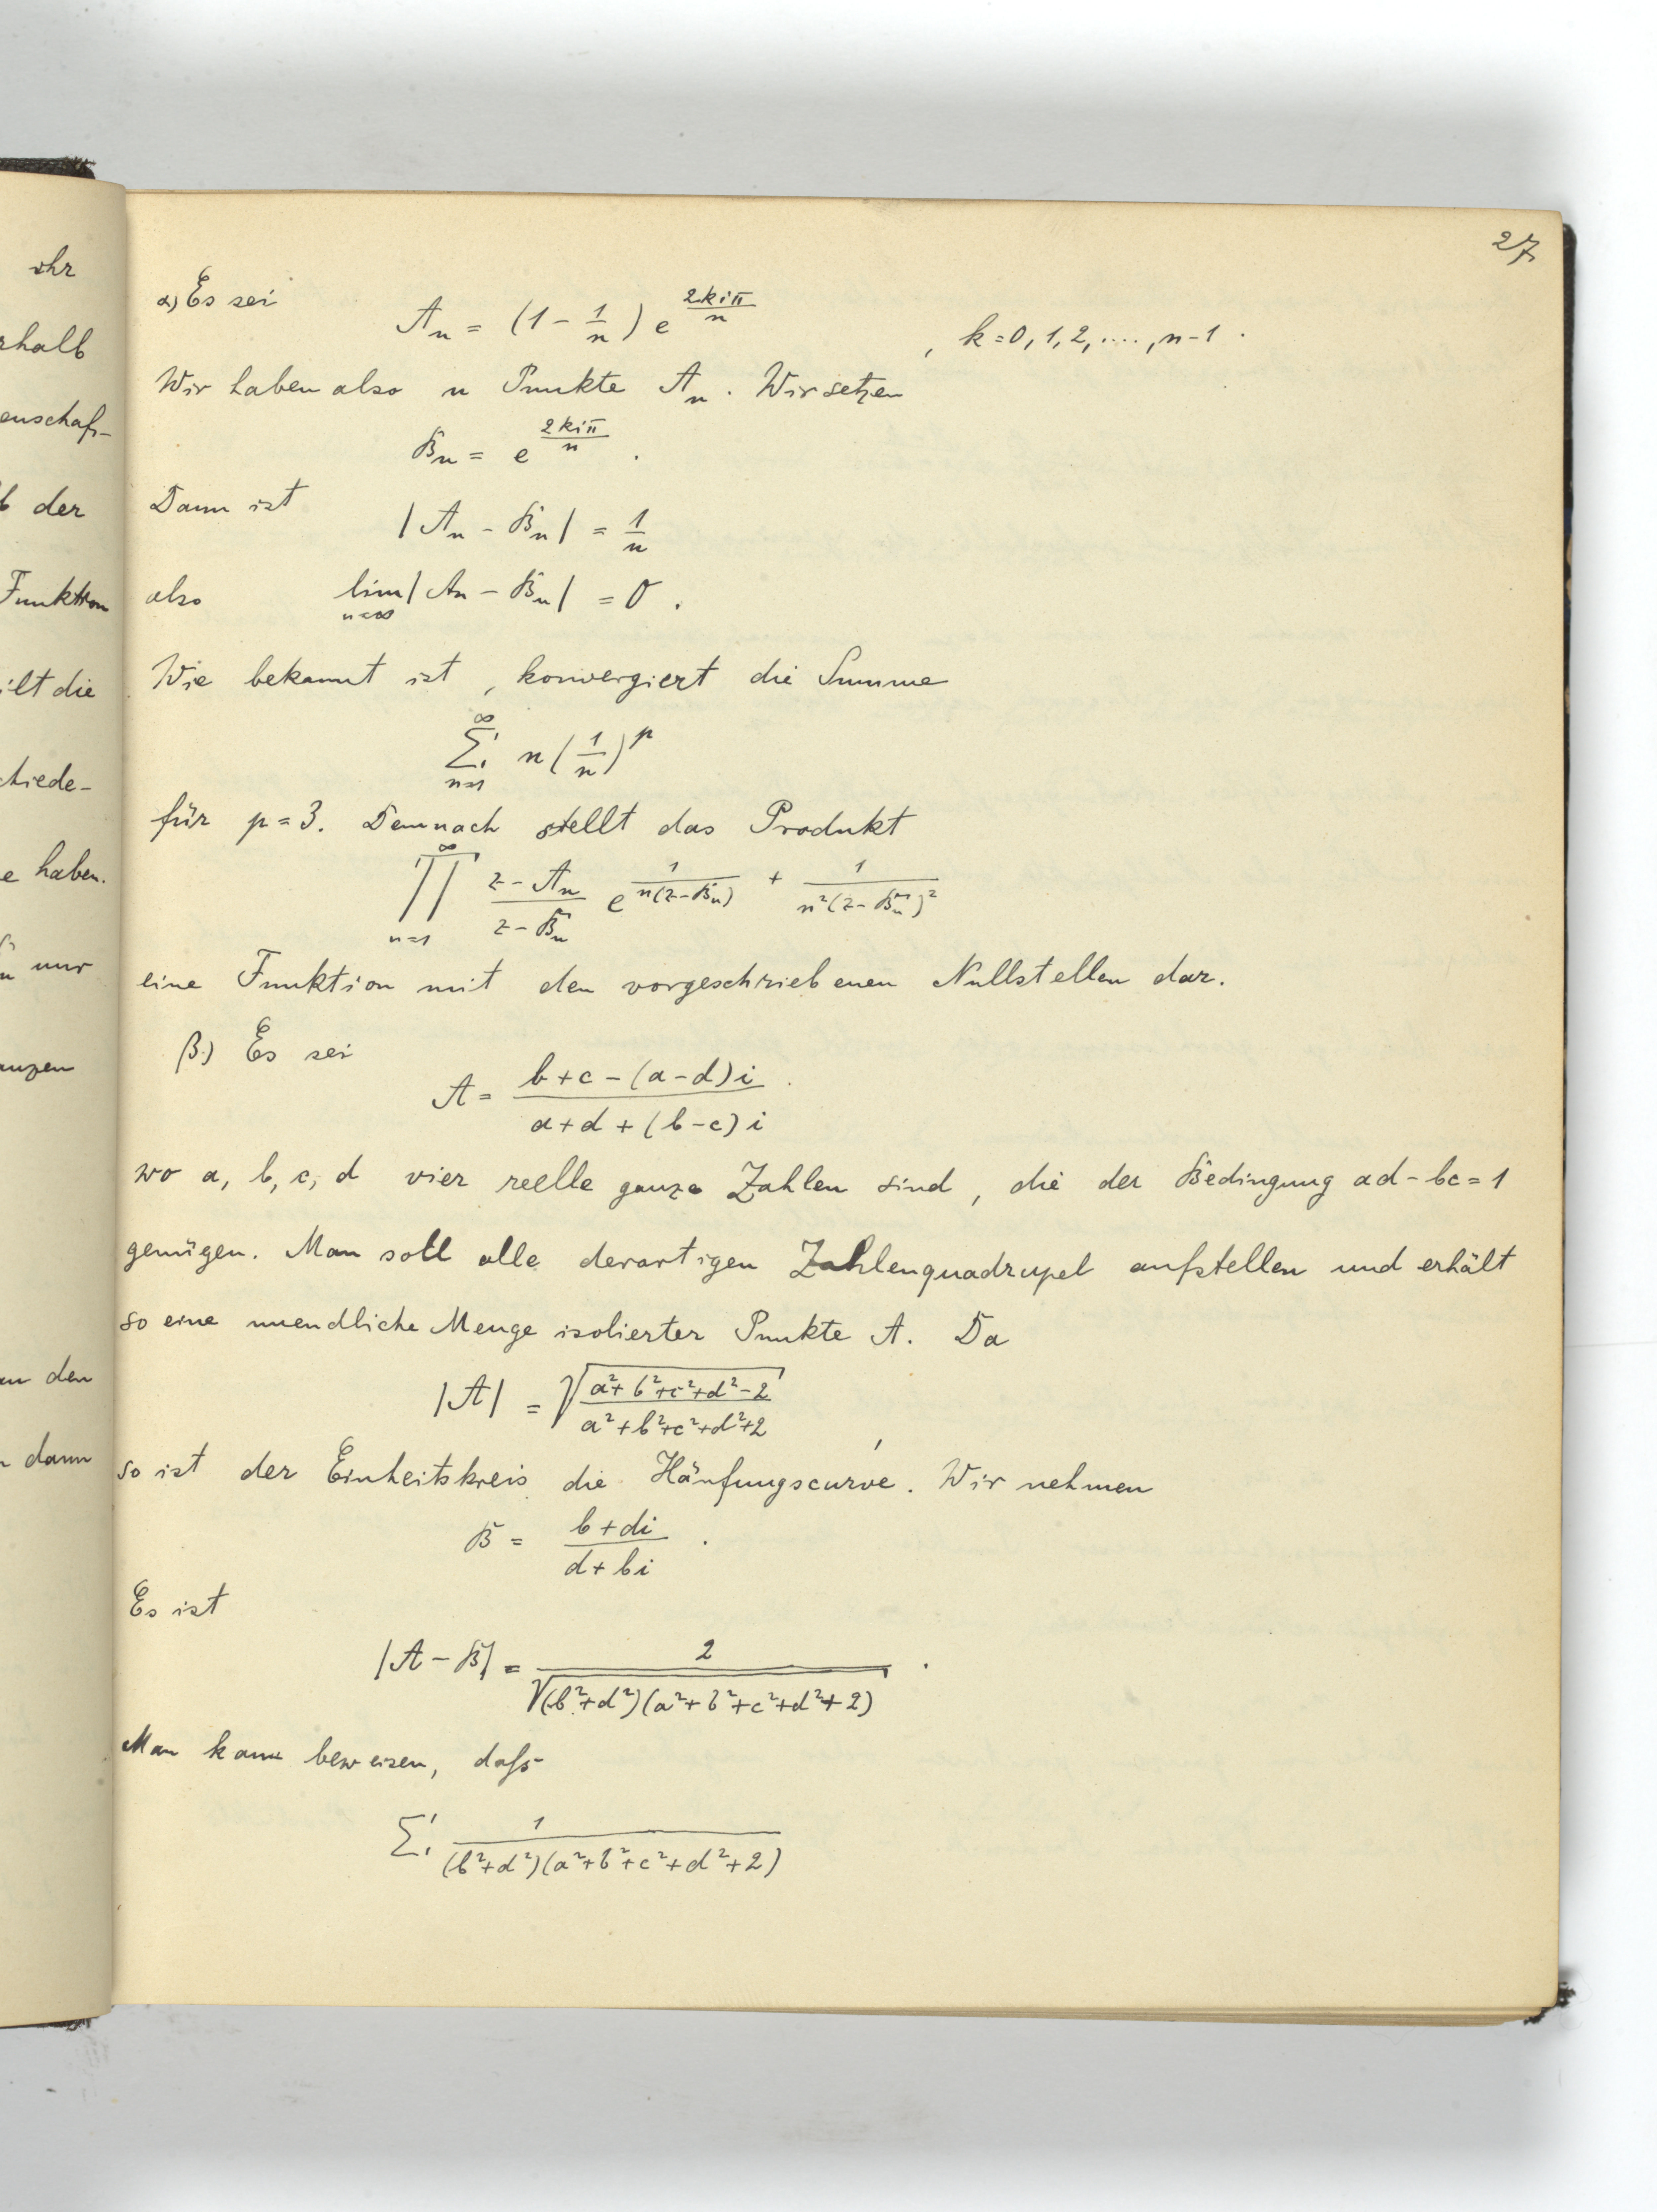 ihr
rhalb
enschaf-
b der
Funktion
ilt die
chiede-
e haben.
nur
anzen
an den
dann
27
α) Es sei
A_n = (1 - 1/n) e^{2kiπ/n} , k = 0, 1, 2, ...., n-1 .
Wir haben also n Punkte A_n . Wir setzen
B_n = e^{2kiπ/n} .
Dann ist
|A_n - B_n| = 1/n
also lim_{n=∞} |A_n - B_n| = 0 .
Wie bekannt ist, konvergiert die Summe
∑_{n=1}^{∞} n (1/n)^p
für p = 3. Demnach stellt das Produkt
∏_{n=1}^{∞} (z - A_n)/(z - B_n) e^{1/(n(z-B_n)) + 1/(n²(z-B_n)²)}
eine Funktion mit den vorgeschriebenen Nullstellen dar.
β.) Es sei
A = (b+c-(a-d)i)/(a+d+(b-c)i) .
wo a, b, c, d vier reelle ganze Zahlen sind, die der Bedingung ad-bc=1
genügen. Man soll alle derartigen Zahlenquadrupel aufstellen und erhält
so eine unendliche Menge isolierter Punkte A. Da
|A| = √((a²+b²+c²+d²-2)/(a²+b²+c²+d²+2)) ,
so ist der Einheitskreis die Häufungscurve. Wir nehmen
B = (b+di)/(d+bi) .
Es ist
|A-B| = 2/√((b²+d²)(a²+b²+c²+d²+2)) .
Man kann beweisen, daß
∑ 1/((b²+d²)(a²+b²+c²+d²+2))